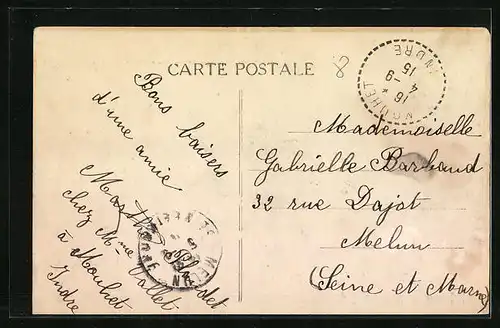 CARTE POSTALE
8
MOUHET
INDRE
16 *
4 -9
15
Bons baisers
d'une amie
chez Mme
à Mouhet
Indre
MELUN
Mademoiselle
Gabrielle Barbaud
32 rue Dajot
Melun
(Seine et Marne)